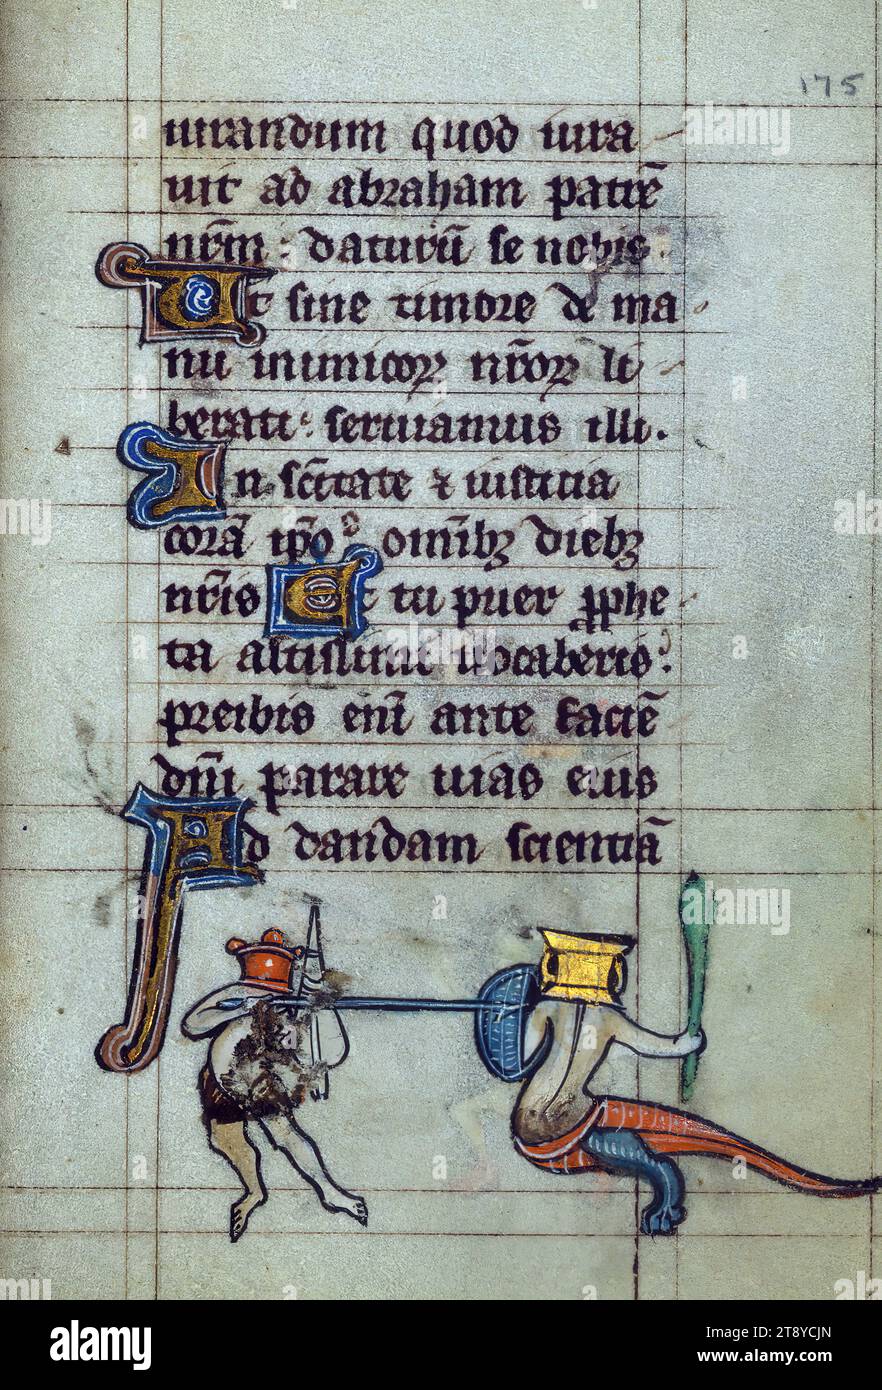 175
iurandum quod iura
uit ad abraham patrē
nr̄m : daturū se nobis.
Ut sine timore de ma
nu inimicoꝝ nr̄oꝝ li
berati : seruiamus illi.
In sc̄itate ⁊ iusticia
corā ip̄o : omībꝫ diebꝫ
nr̄is Et tu puer ꝓphe
ta altissimi uocaberis :
preibis enī ante faciē
dn̄i parare uias eius
Ad dandam scientiā
alamy
alamy
Image ID: 2T8YCJN
www.alamy.com